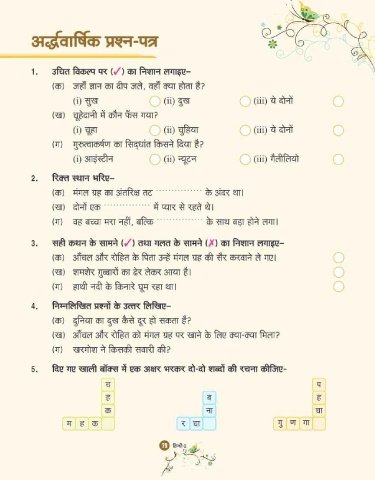 अर्द्धवार्षिक प्रश्न-पत्र
1. उचित विकल्प पर (✓) का निशान लगाइए–
(क) जहाँ ज्ञान का दीप जले, वहाँ क्या होता है?
(i) सुख (ii) दुख (iii) ये दोनों
(ख) चूहेदानी में कौन फँस गया?
(i) चूहा (ii) चुहिया (iii) ये दोनों
(ग) गुरुत्वाकर्षण का सिद्धांत किसने दिया है?
(i) आइंस्टीन (ii) न्यूटन (iii) गैलीलियो
2. रिक्त स्थान भरिए–
(क) मंगल ग्रह का अंतरिक्ष तट ................ के अंदर था।
(ख) दोनों एक ................ में प्यार से रहते थे।
(ग) वह बच्चा मरा नहीं, बल्कि ................ के साथ बड़ा होने लगा।
3. सही कथन के सामने (✓) तथा गलत के सामने (✗) का निशान लगाइए–
(क) आँचल और रोहित के पिता उन्हें मंगल ग्रह की सैर करवाने ले गए।
(ख) शमशेर गुब्बारों का ढेर लेकर आया है।
(ग) हाथी नदी के किनारे घूम रहा था।
4. निम्नलिखित प्रश्नों के उत्तर लिखिए–
(क) दुनिया का दुख कैसे दूर हो सकता है?
(ख) आँचल और रोहित को मंगल ग्रह पर खाने के लिए क्या-क्या मिला?
(ग) खरगोश ने किसकी सवारी की?
5. दिए गए खाली बॉक्स में एक अक्षर भरकर दो-दो शब्दों की रचना कीजिए–
प
ह ब ह
क ना चा
म ह क र चा गु ण गा
हिन्दी-3